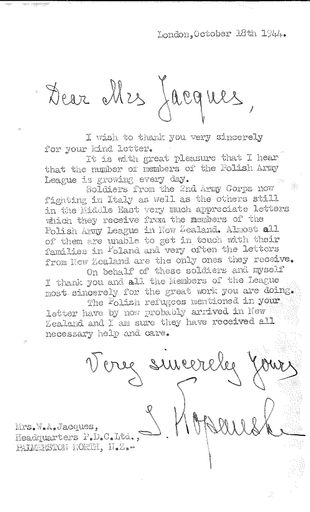 London,October 18th 1944.
Dear Mrs Jacques,
I wish to thank you very sincerely
for your kind letter.
It is with great pleasure that I hear
that the number of members of the Polish Army
League is growing every day.
Soldiers from the 2nd Army Corps now
fighting in Italy as well as the others still
in the Middle East very much appreciate letters
which they receive from the members of the
Polish Army League in New Zealand. Almost all
of them are unable to get in touch with their
families in Poland and very often the letters
from New Zealand are the only ones they receive.
On behalf of these soldiers and myself
I thank you and all the Members of the League
most sincerely for the great work you are doing.
The Polish refugees mentioned in your
letter have by now probably arrived in New
Zealand and I am sure they have received all
necessary help and care.
Very sincerely Yours
S. Kopanski
Mrs.W.A.Jacques,
Headquarters P.D.C.Ltd.,
PALMERSTON NORTH, N.Z.-